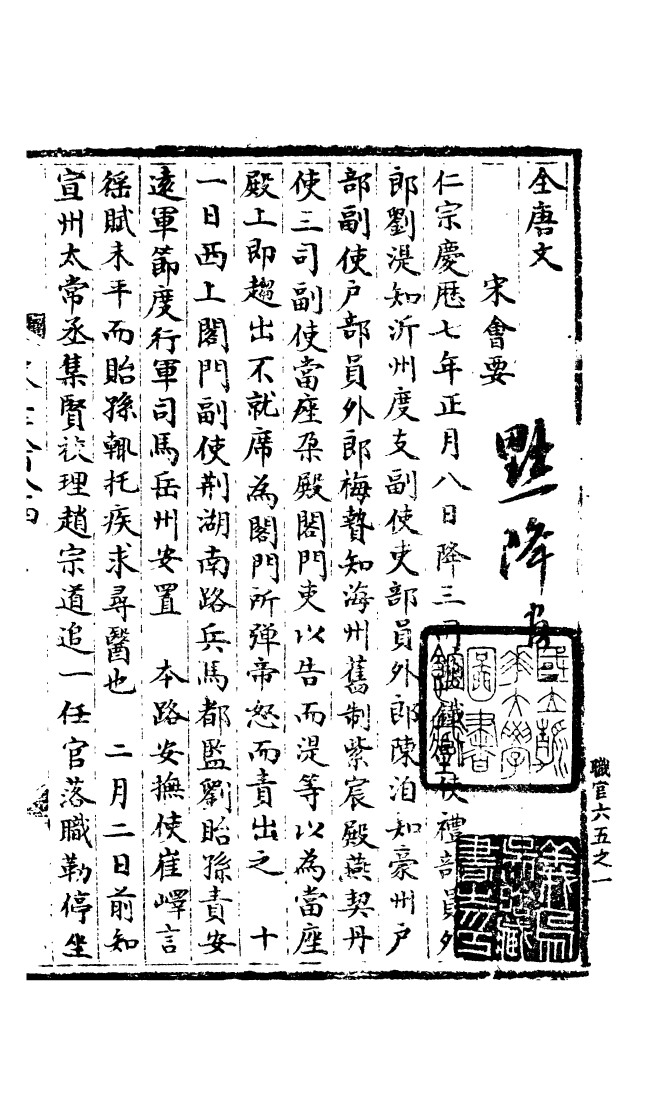 全唐文
宋會要
黜降官
仁宗慶歷七年正月八日降三司鹽鐵副使禮部員外
郎劉湜知沂州度支副使吏部員外郎陳洎知豪州戶
部副使戶部員外郎梅摯知海州舊制紫宸殿燕契丹
使三司副使當座朶殿閤門吏以告而湜等以為當座
殿上即趨出不就席為閤門所弹帝怒而責出之 十
一日西上閤門副使荆湖南路兵馬都監劉貽孫責安
遠軍節度行軍司馬岳州安置 本路安撫使崔嶧言
徭賦未平而貽孫輒托疾求尋醫也 二月二日前知
宣州太常丞集賢校理趙宗道追一任官落職勒停坐
國立浙
江大學
圖書
職官六五之一